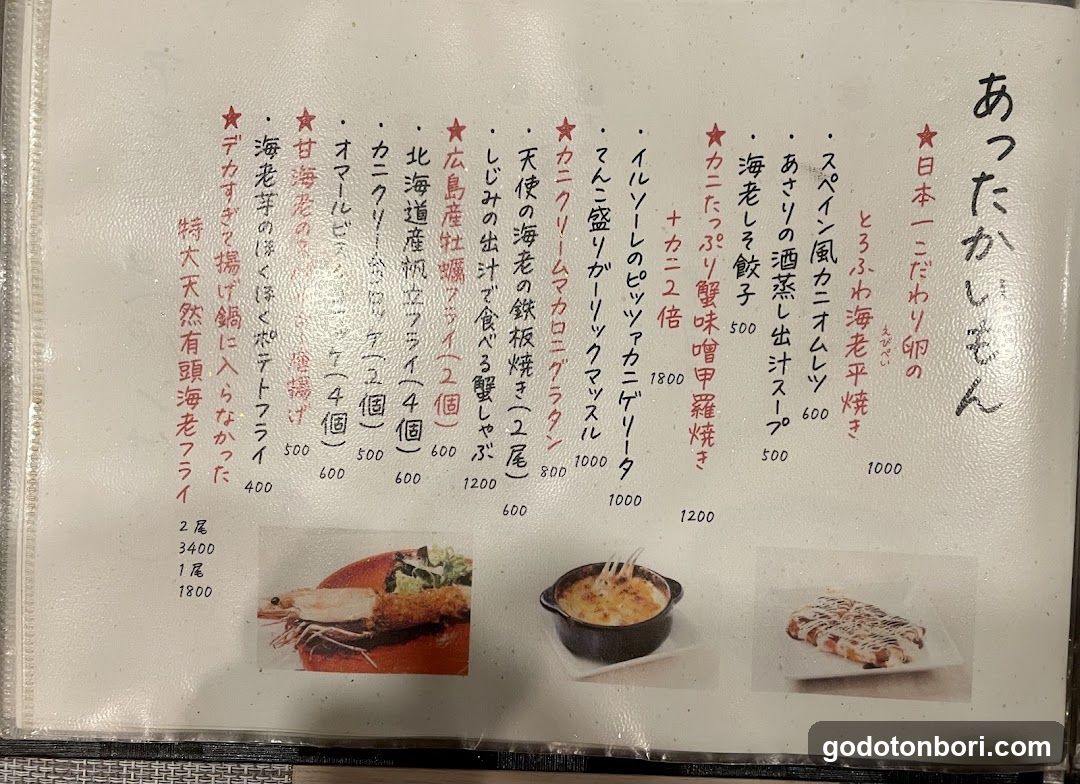 あったかいもん
★日本一こだわり卵の
とろふわ海老平焼き
えびぺい
1000
・スペイン風カニオムレツ
600
・あさりの酒蒸し出汁スープ
500
・海老しそ餃子
500
★カニたっぷり蟹味噌甲羅焼き
1200
+カニ2倍
1800
・イルソーレのピッツァカニゲリータ
1000
・てんこ盛りガーリックマッスル
1000
★カニクリームマカロニグラタン
800
・天使の海老の鉄板焼き(2尾)
600
・しじみの出汁で食べる蟹しゃぶ
1200
★広島産牡蠣フライ(2個)
600
・北海道産帆立フライ(4個)
600
・カニクリームコロッケ(2個)
500
・オマールビ
ケ(4個)
600
★甘海老の
唐揚げ
500
・海老芋のほくほくポテトフライ
400
★デカすぎて揚げ鍋に入らなかった
特大天然有頭海老フライ
2尾
3400
1尾
1800
godotonbori.com